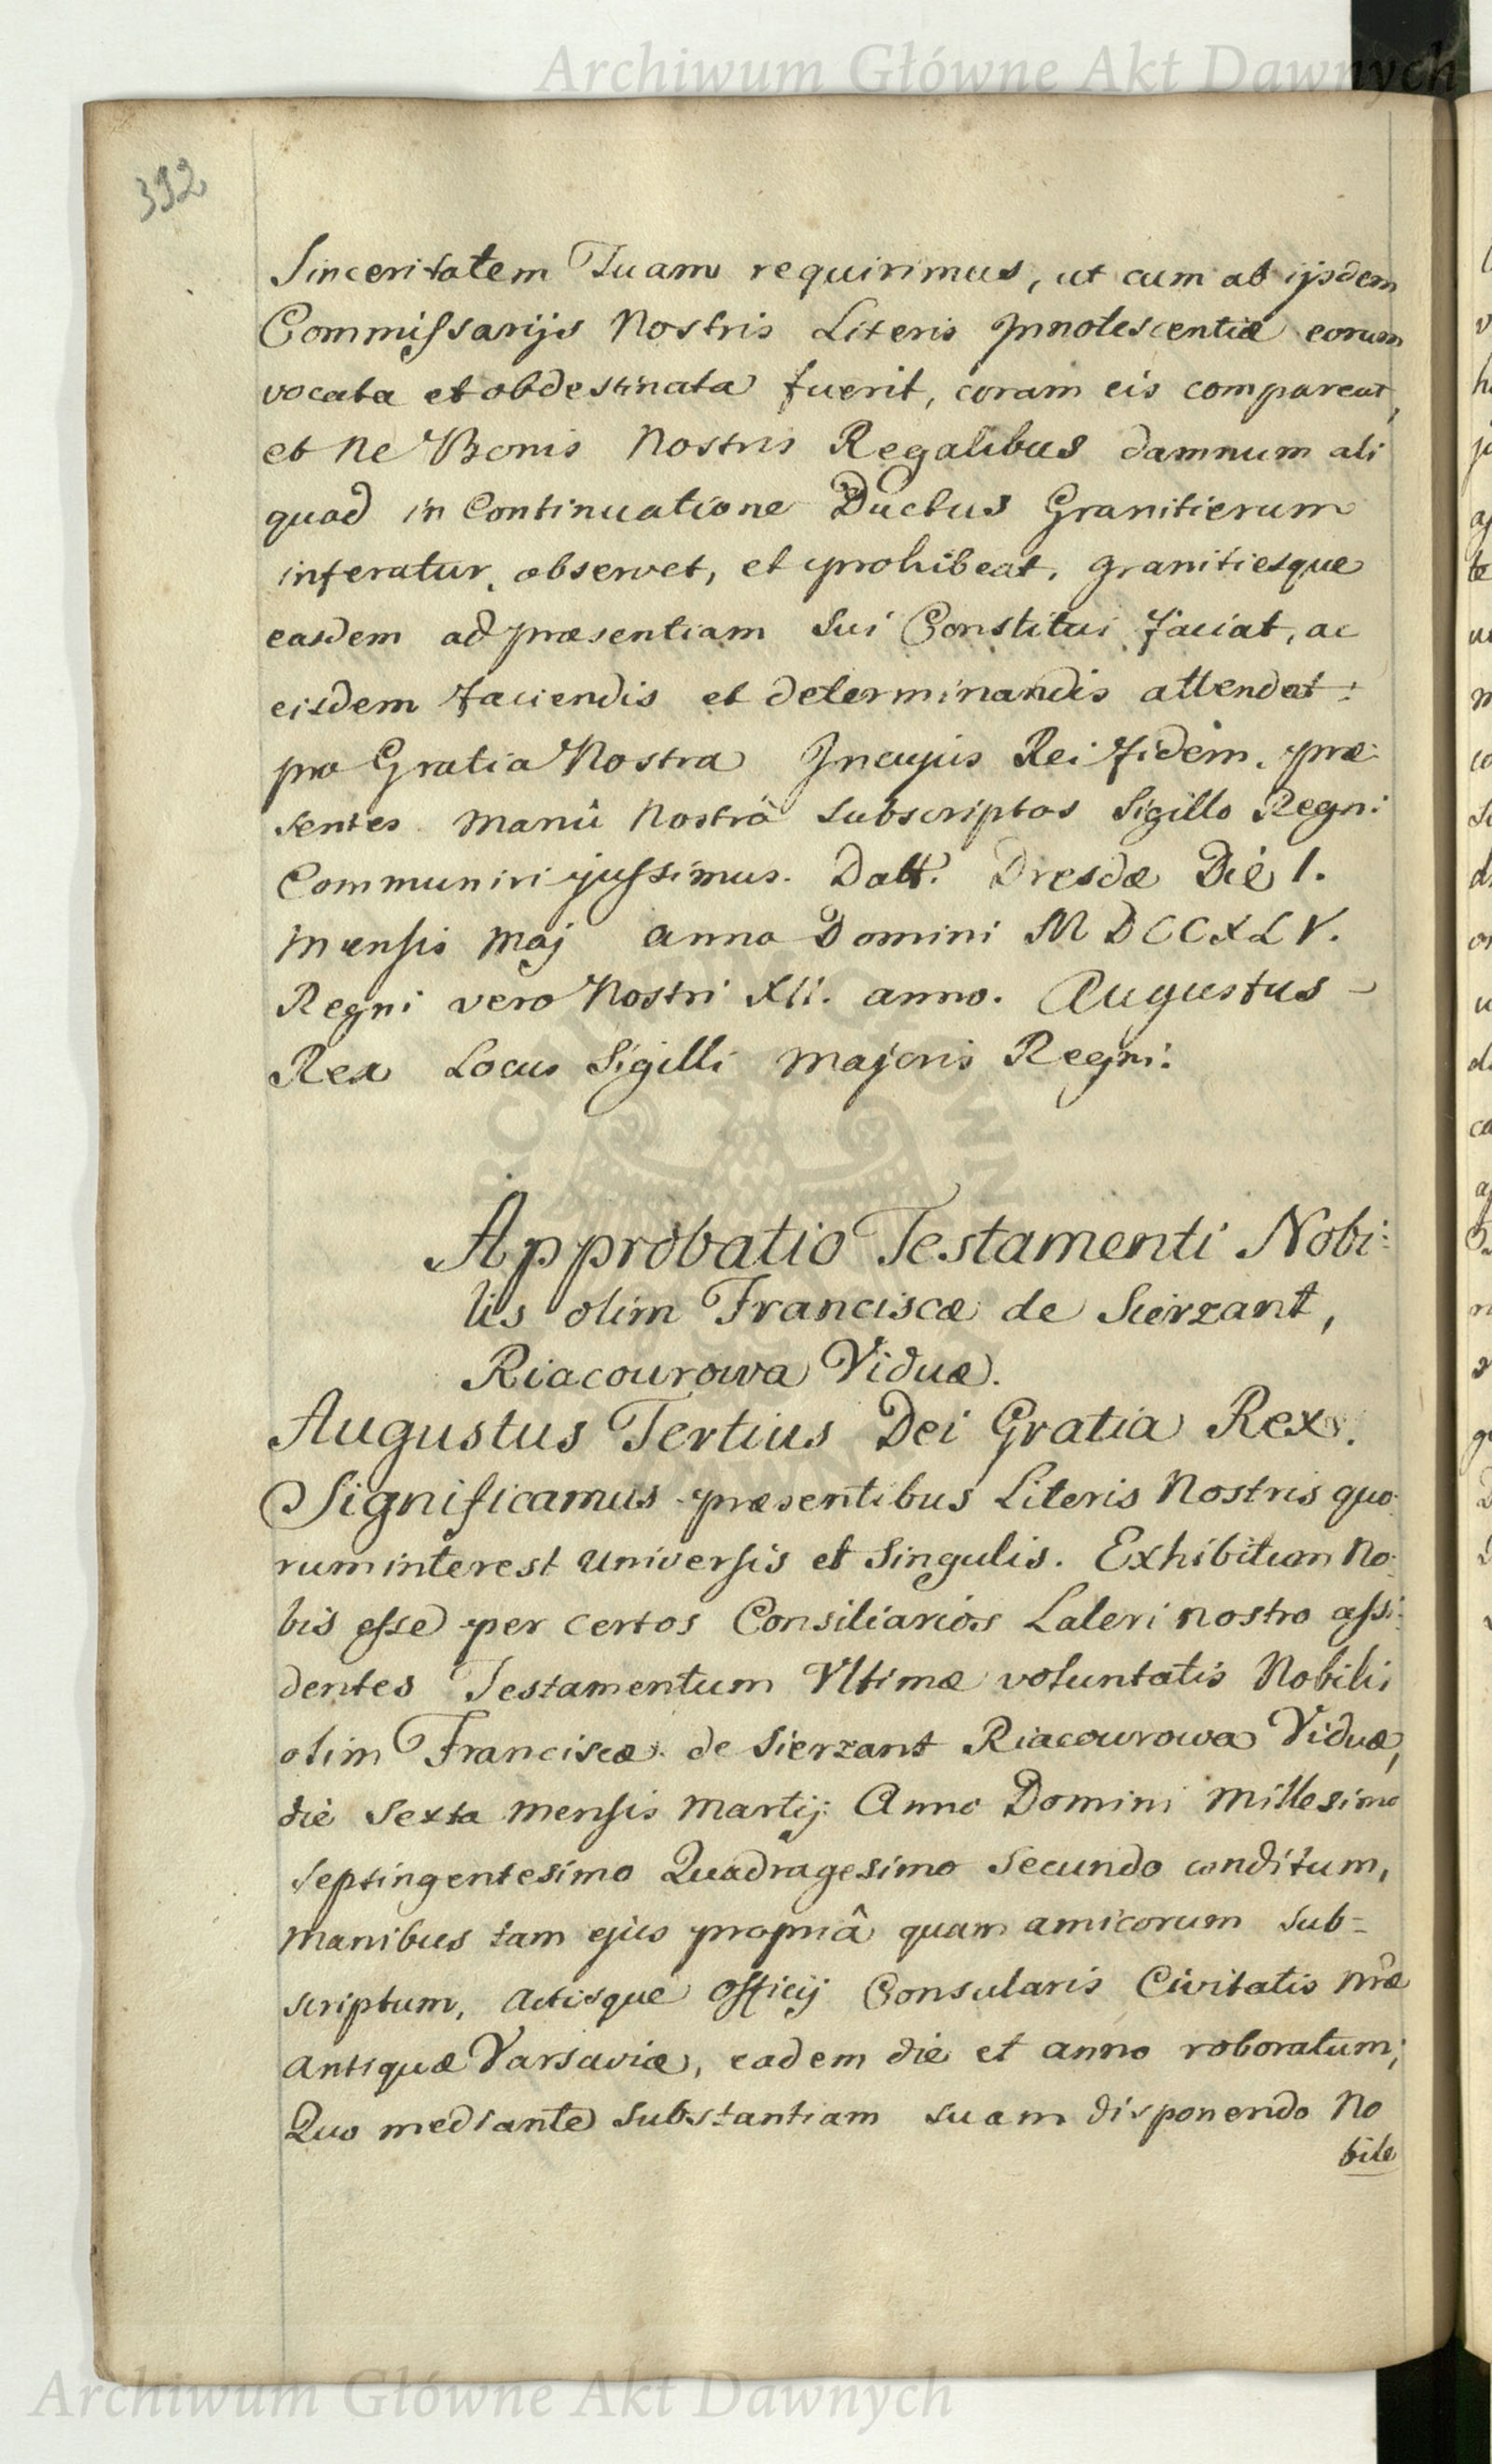 Archiwum Główne Akt Dawnych
392
Sinceritatem Tuam requirimus, ut cum ab ijsdem
Commissarijs Nostris Literis Innotescentiæ eorum
vocata et obdestinata fuerit, coram eis compareat,
et ne Bonis Nostris Regalibus damnum ali
quod in Continuatione Ductus Granitierum
inferatur, observet, et prohibeat, granitiesque
easdem ad præsentiam sui Constitui faciat, ac
eisdem faciendis et determinandis attendat:
pro Gratia Nostra Incujus Rei fidem, præ:
sentes manû Nostrâ subscriptas Sigillo Regni
Communiri jussimus. Datt. Dresdæ Die 1.
mensis Maj anno Domini MDCCXLV.
Regni vero Nostri XII. anno. Augustus
Rex Locus Sigilli Majoris Regni.
Approbatio Testamenti Nobi:
lis olim Franciscæ de Sierzant,
Riacourowa Viduæ.
Augustus Tertius Dei Gratia Rex.
Significamus præsentibus Literis Nostris quo:
rum interest Universis et Singulis. Exhibitum No:
bis esse per certos Consiliarios Lateri nostro assi:
dentes Testamentum Ultimæ voluntatis Nobilis
olim Franciscæ de Sierzant Riacourowa Viduæ,
die Sexta mensis Martij: Anno Domini Millesimo
Septingentesimo Quadragesimo Secundo conditum,
manibus tam ejus propriâ quam amicorum sub=
scriptum, Actisque Officij Consularis Civitatis Nræ
Antiquæ Varsaviæ, eadem die et anno roboratum;
Quo mediante substantiam suam disponendo No
bile
Archiwum Główne Akt Dawnych